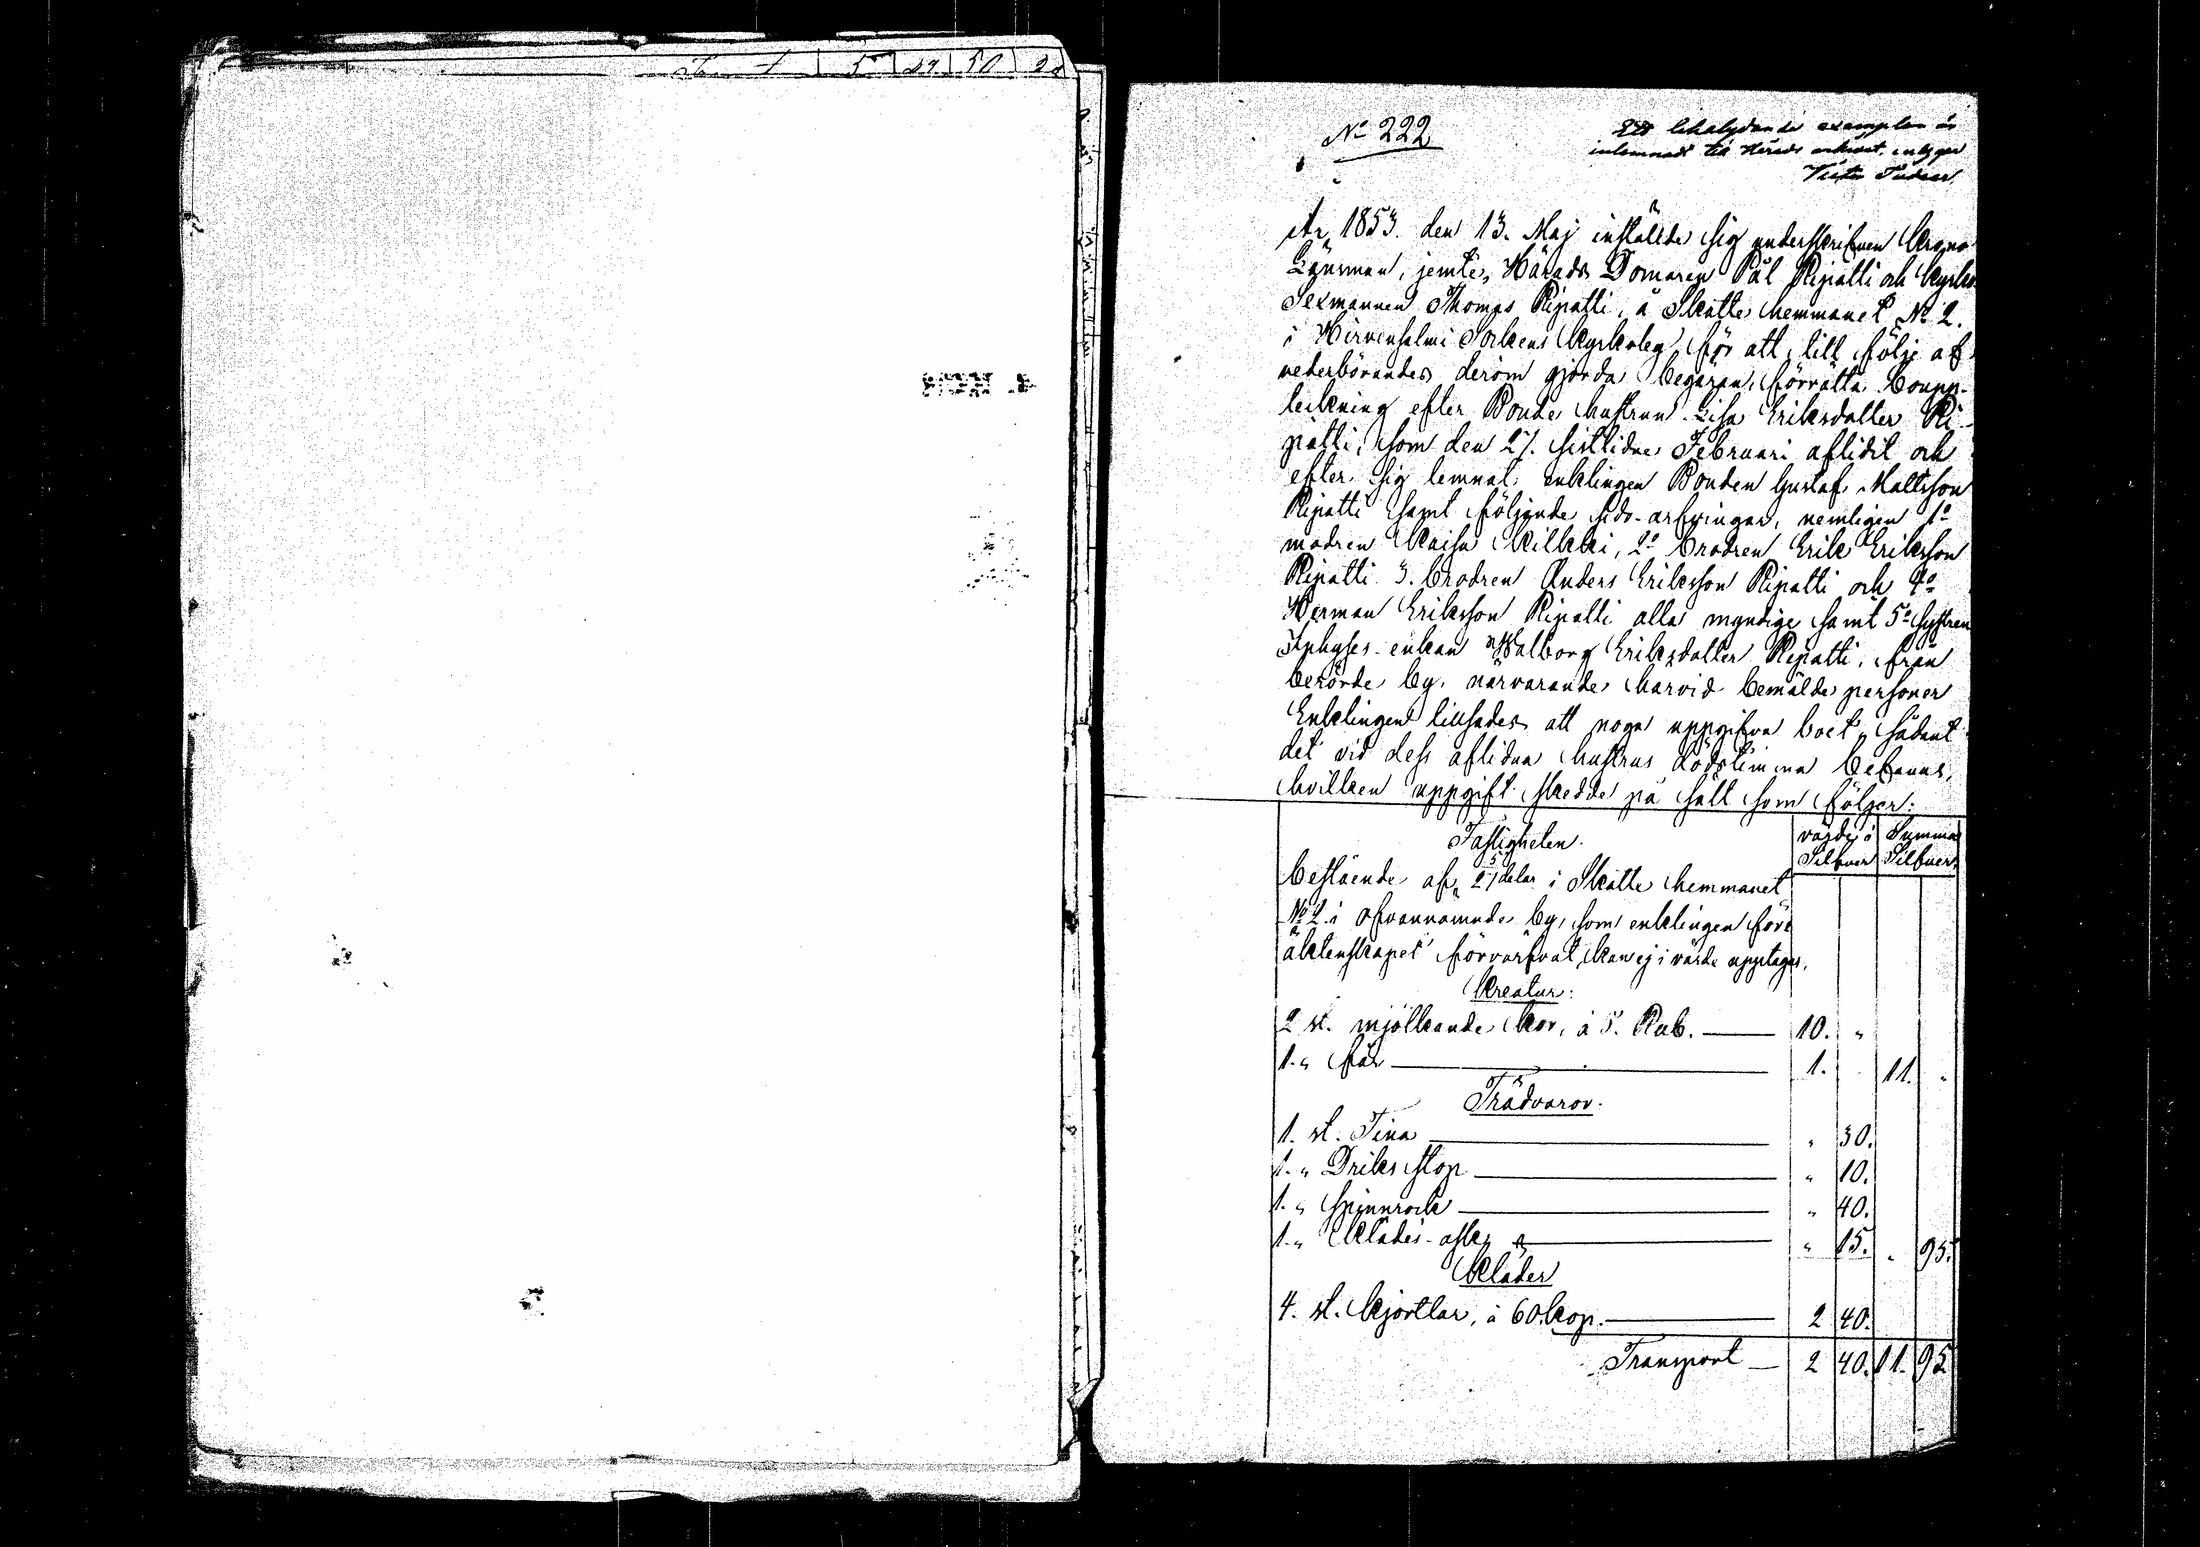 5 50
No 222
Ett likalydande exemplar är
inlemnadt till Härads arkivet, intygar
År 1853 den 13. Maj inställde sig underskrifven Krono
Länsman, jemte, Härads Domaren Pål Ripatti och Kyrko
Sexmannen Thomas Ripatti, å Skatte hemmanet No 2.
i Hirvensalmi Sockens Kyrkoby för att till följe af
vederbörandes derom gjorda begäran, förrätta bouppteckning
teckning efter Bonde hustrun Lisa Eriksdotter Ri-
patti, som den 27. sistlidne Februari aflidit och
efter sig lemnat enklingen Bonden Gustaf Mattsson
Ripatti samt följande sido-arfvingar, nemligen 1o
modren Kaisa Kilkki, 2o brodren Erik Eriksson
Ripatti 3. brodren Anders Eriksson Ripatti och 4o
Herman Eriksson Ripatti alla myndige samt 5o systren
Inhyses-enkan Walborg Eriksdotter Ripatti, från
berörde by. närvarande harvid bemälde personer
Enklingen tillsades att noga uppgifva boet, sådant
det vid dess aflidna hustrus dödstimma befanns,
hvilken uppgift skedde på sätt som följer:
Fastigheten. värde i Silfver Summa Silfver
bestående af 5/27 delar i Skatte hemmanet
No 2 i ofvannämnde by, som enklingen före
äktenskapet förvärfvat, kan ej i värde upptagas,
Kreatur:
2 st. mjölkande kor, à 5. Rub. 10. "
1. " får 1. 11. "
Trädvaror.
1. st. Tina " 30.
1. " Dricks stop " 10.
1. " Spinnrock " 40.
1. " Klädes-ask " 15. " 95.
Kläder
4. st. kjortlar, à 60 kop. 2 40.
Transport 2 40. 11. 95